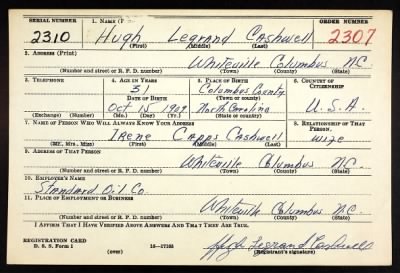 SERIAL NUMBER 1. NAME (P ORDER NUMBER
2310 Hugh Legrand Cashwell 2307
(First) (Middle) (Last)
2. ADDRESS (PRINT)
Whiteville Columbus N.C.
(Number and street or R. F. D. number) (Town) (County) (State)
3. TELEPHONE 4. AGE IN YEARS 5. PLACE OF BIRTH 6. COUNTRY OF CITIZENSHIP
31 Columbus County
DATE OF BIRTH (Town or county)
Oct 15 1909 North Carolina U.S.A.
(Exchange) (Number) (Mo.) (Day) (Yr.) (State or country)
7. NAME OF PERSON WHO WILL ALWAYS KNOW YOUR ADDRESS 8. RELATIONSHIP OF THAT PERSON
Irene Capps Cashwell Wife
(Mr., Mrs., Miss) (First) (Middle) (Last)
9. ADDRESS OF THAT PERSON
Whiteville Columbus N.C.
(Number and street or R. F. D. number) (Town) (County) (State)
10. EMPLOYER'S NAME
Standard Oil Co.
11. PLACE OF EMPLOYMENT OR BUSINESS
Whiteville Columbus N.C.
(Number and street or R. F. D. number) (Town) (County) (State)
I AFFIRM THAT I HAVE VERIFIED ABOVE ANSWERS AND THAT THEY ARE TRUE.
REGISTRATION CARD
D. S. S. Form 1 (over) 16—17105 Hugh Legrand Cashwell
(Registrant's signature)